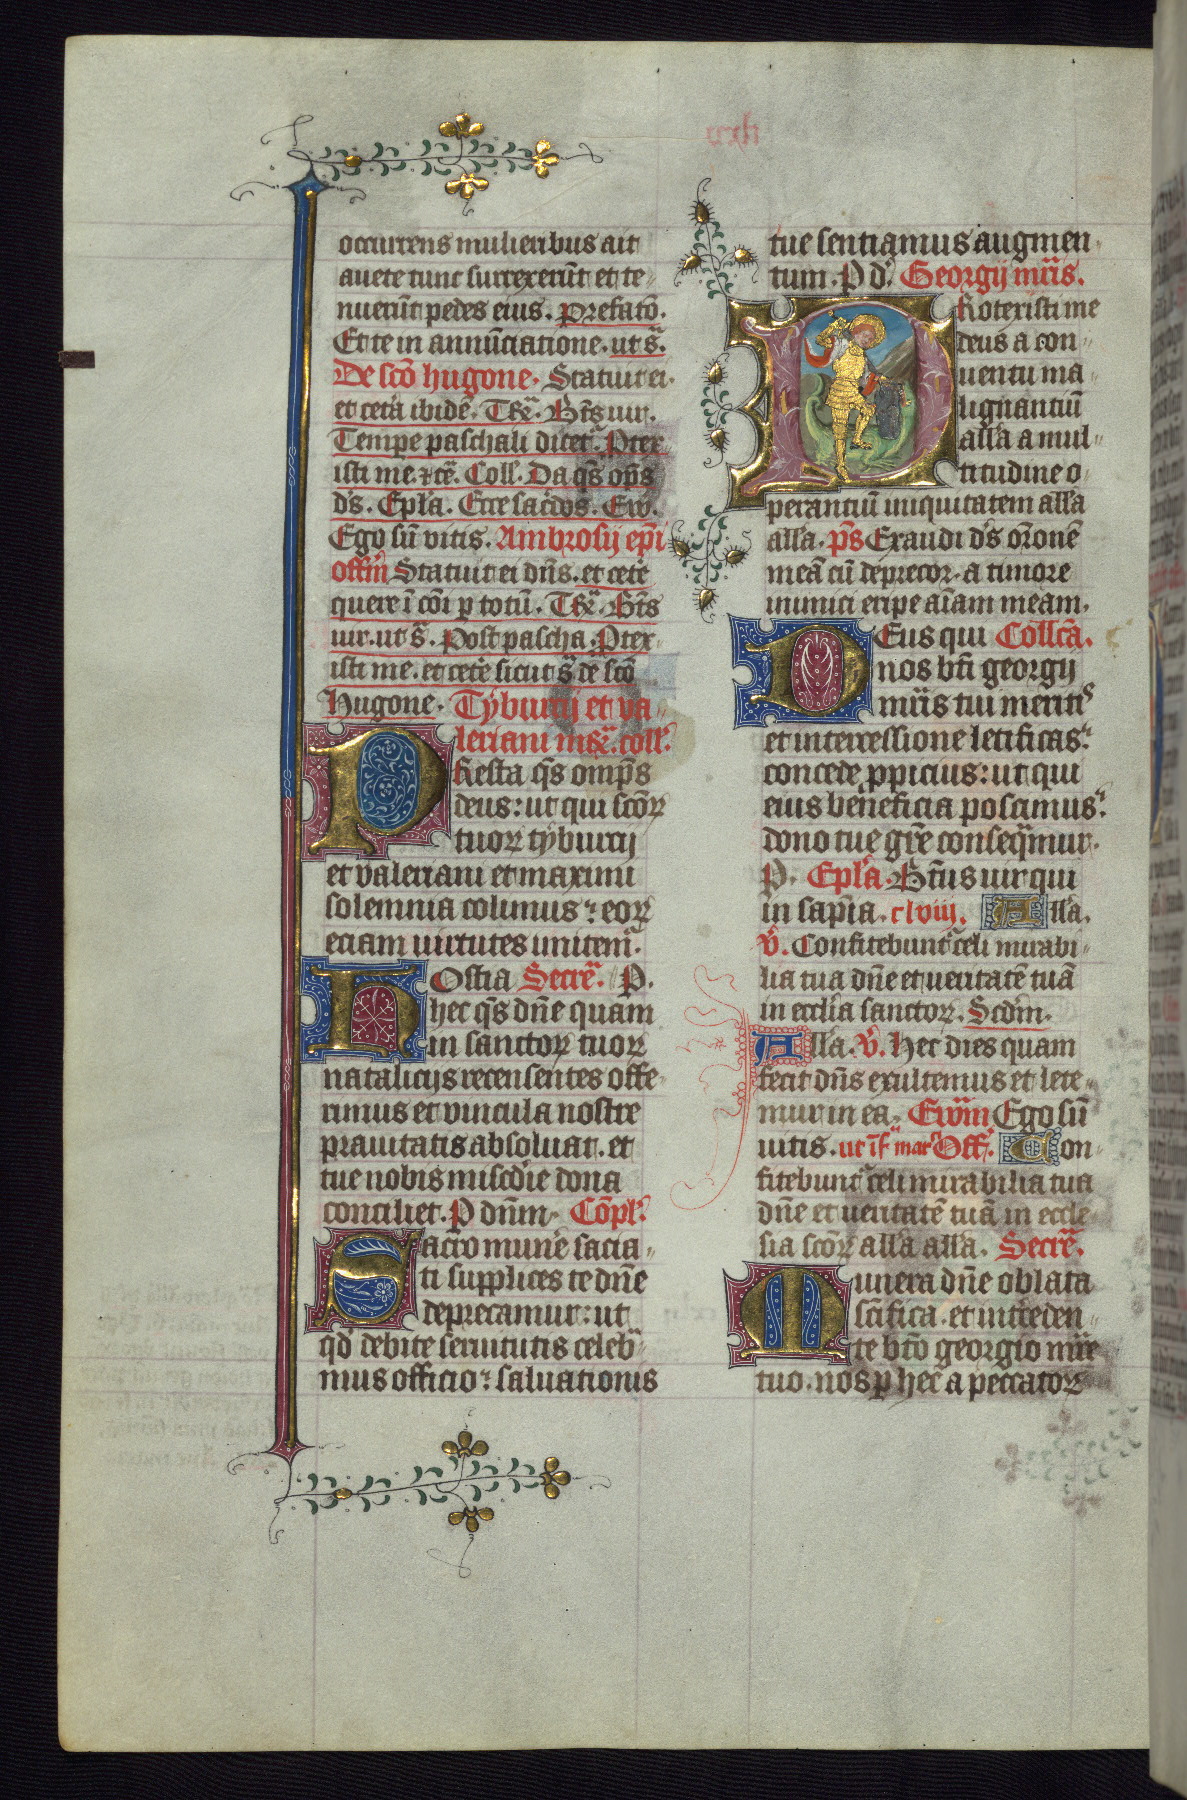 occurrens mulieribus ait
avete tunc surrexerūt et te-
nuerūt pedes eius. prefato.
Et te in annūciatione. ut s̄.
De scō hugone. Statuit ei.
et cetā ibidē. Tr̄. Bt̄s vir.
Tempe paschali dicet͛. Ptex
isti me. ⁊cē. Coll̄. Da qs̄ op̄s
ds̄. Epl̄a. Ecce sac̄dos. Ew̄.
Ego sū vitis. Ambrosij ep̄i
offm̄ Statuit ei dn̄s. et cetē
quere ī cōi p totū. Tr̄. Bt̄s
vir. ut s̄. Post pascha. Ptex
isti me. et cetē sicut s̄ de scō
Hugone. Tyburtij et va-
leriani mr̄. coll̄.
PResta qs̄ omp̄s
deus: ut qui scōꝝ
tuoꝝ tyburtij
et valeriani et maximi
solemnia colimus: eoꝝ
eciam virtutes imitem͛.
HOstia Secrē. P.
hec qs̄ dn̄e quam
in sanctoꝝ tuoꝝ
natalicijs recensentes offe-
rimus et vincula nostre
pravitatis absolvat. et
tue nobis misc̄die dona
conciliet. P dn̄m. Cōpl̄.
Sacro mun̄e sacia-
ti supplices te dn̄e
deprecamur: ut
qd̄ debite servitutis celeb̄-
mus officio: salvationis
ccxlj
tue sentiamus augmen-
tum. P d. Georgij mr̄is.
PRotexisti me
deus a con-
ventu ma-
lignantiū
all̄a a mul-
titudine o-
perantiū iniquitatem all̄a
all̄a. ps̄ Exaudi ds̄ or̄onē
meā cū deprecor. a timore
inimici eripe aīam meam.
DEus qui Coll̄cā.
nos bt̄i georgij
mr̄is tui merit͛
et intercessione letificas:
concede ppicius: ut qui
eius beneficia poscimus:
dono tue gr̄e conseq̄mur.
P. Epl̄a. Bt̄us vir qui
in sap̄ia. clviij. All̄a.
V̄. Confitebunt͛ celi mirabi-
lia tua dn̄e et veritatē tuā
in eccl̄ia sanctoꝝ. Scd̄m.
All̄a. V̄. Hec dies quam
fecit dn̄s exultemus et lete-
mur in ea. Ew̄m Ego sū
vitis. ut īf͛ mar͛ Off͛. Con-
fitebunt͛ celi mirabilia tua
dn̄e et veritatē tuā in eccle-
sia scōꝝ all̄a all̄a. Secrē.
Munera dn̄e oblata
sc̄ifica. et int̄ceden-
te bt̄o georgio mr̄e
tuo. nos p hec a peccatoꝝ